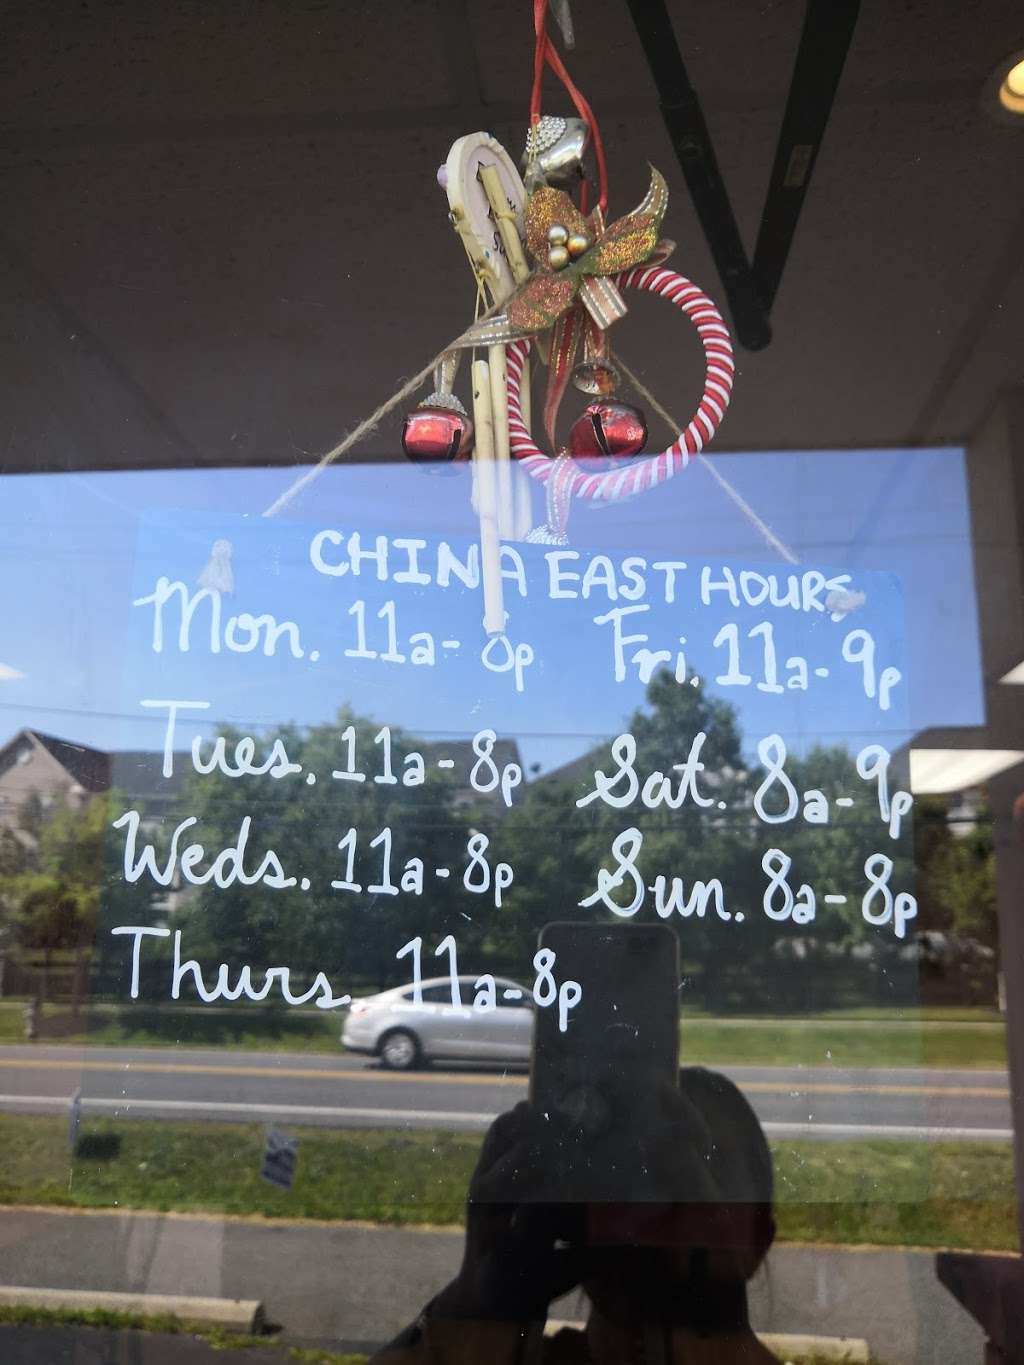 CHINA EAST HOURS
Mon. 11a- 8p
Tues. 11a-8p
Weds. 11a-8p
Thurs. 11a-8p
Fri. 11a-9p
Sat. 8a-9p
Sun. 8a-8p